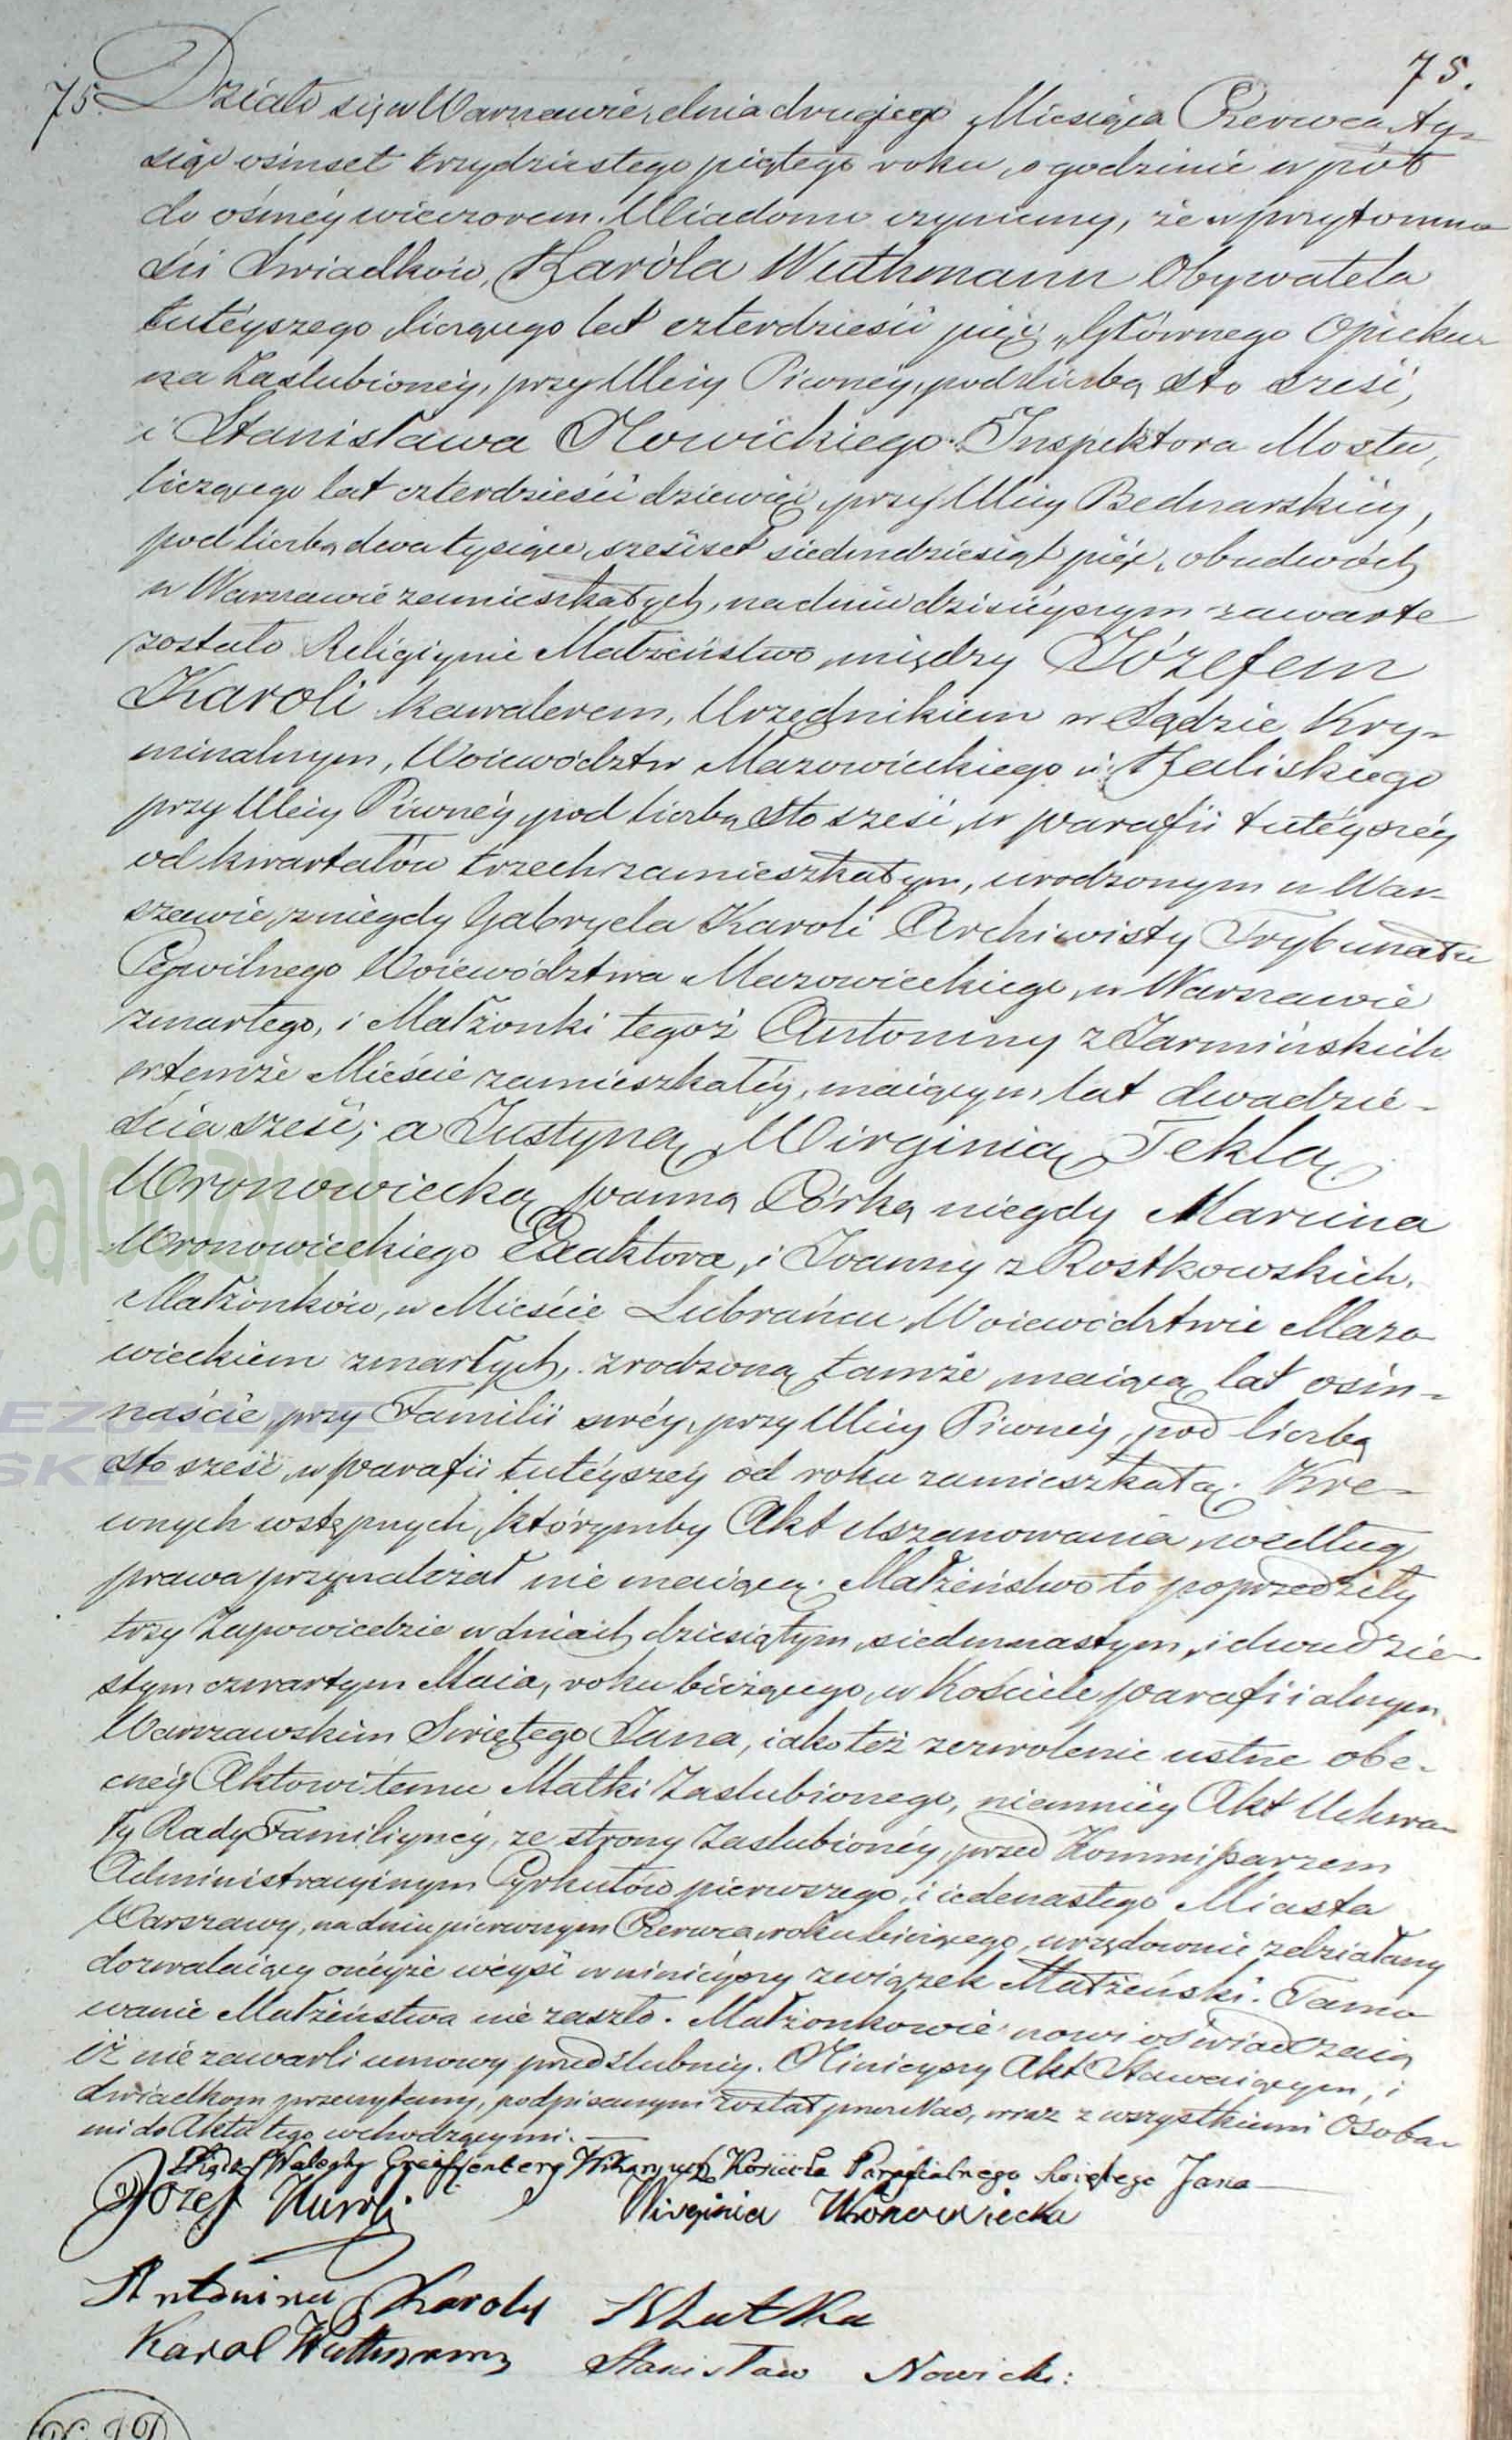 75.
75. Działo się w Warszawie, dnia drugiego Miesiąca Czerwca, ty-
siąc ośmset trzydziestego piątego roku, o godzinie w pół
do ósméy wieczorem. Wiadomo czyniemy, że w przytomno
ści świadków, Karóla Wuthmann Obywatela
tutéyszego liczącego lat czterdzieści pięć, Głównego Opieku-
na Zaślubionéy, przy Ulicy Piwnéy, pod liczbą sto sześć,
i Stanisława Nowickiego Inspektora Mostu,
liczącego lat czterdzieści dziewięć, przy Ulicy Bednarskiéy,
pod liczbą dwa tysiące sześćset siedmdziesiąt pięć, obudwóch
w Warszawie zamieszkałych, na dniu dzisieyszym zawarte
zostało Religiynie Małżeństwo, między Józefem
Karoli kawalerem, Urzędnikiem w Sądzie Kry-
minalnym, Województw Mazowieckiego i Kaliskiego
przy Ulicy Piwnéy, pod liczbą sto sześć, w parafii tutéyszéy
od kwartałów trzech zamieszkałym, urodzonym w War-
szawie, z niegdy Gabryela Karoli Archiwisty Trybunału
Cywilnego Województwa Mazowieckiego, w Warszawie
zmarłego, i Małżonki tegoż Antoniny z Jarmińskich
w temże Mieście zamieszkałéy, maiącym lat dwadzie-
ścia sześć; a Justyną Wirginią Teklą
Wronowiecką panną Córką niegdy Marcina
Wronowieckiego Exaktora, i Joanny z Rostkowskich,
Małżonków, w Mieście Lubrańcu, Woiewództwie Mazo
wieckiem zmarłych, zrodzoną tamże, maiącą lat ośm-
naście, przy Familii swéy, przy Ulicy Piwnéy, pod liczbą
sto sześć, w parafii tutéyszéy od roku zamieszkałą. Kre-
wnych wstępnych, którymby Akt Uszanowania według
prawa przynależał nie maiącą. Małżeństwo to poprzedziły
trzy Zapowiedzie w dniach dziesiątym, siedmnastym, i dwudzie-
stym czwartym Maia, roku bieżącego, w Kościele parafiialnym
Warszawskim Świętego Jana, iako też zezwolenie ustne obe-
cnéy Aktowi temu Matki Zaślubionego, niemniéy Akt Uchwa-
ły Rady Familiynéy, ze strony Zaślubionéy, przed Kommissarzem
Administracyinym Cyrkułów pierwszego, i iedenastego Miasta
Warszawy, na dniu pierwszym Czerwca roku bieżącego, urzędownie zdziałany
dozwalaiący onéyże weyść w ninieyszy związek Małżeński. Tamo
wanie Małżeństwa nie zaszło. Małżonkowie nowi oświadczaią
iż nie zawarli umowy przedślubnéy. Ninieyszy Akt Stawaiącym, i
świadkom przeczytany, podpisanym został przez Nas, wraz z wszystkiemi Osoba-
mi do Aktu tego wchodzącymi.
Xiądz Walenty Greiffenberg Wikaryusz Kościoła Parafialnego świętego Jana
Józef Karoli Wirginia Wronowiecka
Antonina Karoly Matka
Karol Wuthmann Stanisław Nowicki: